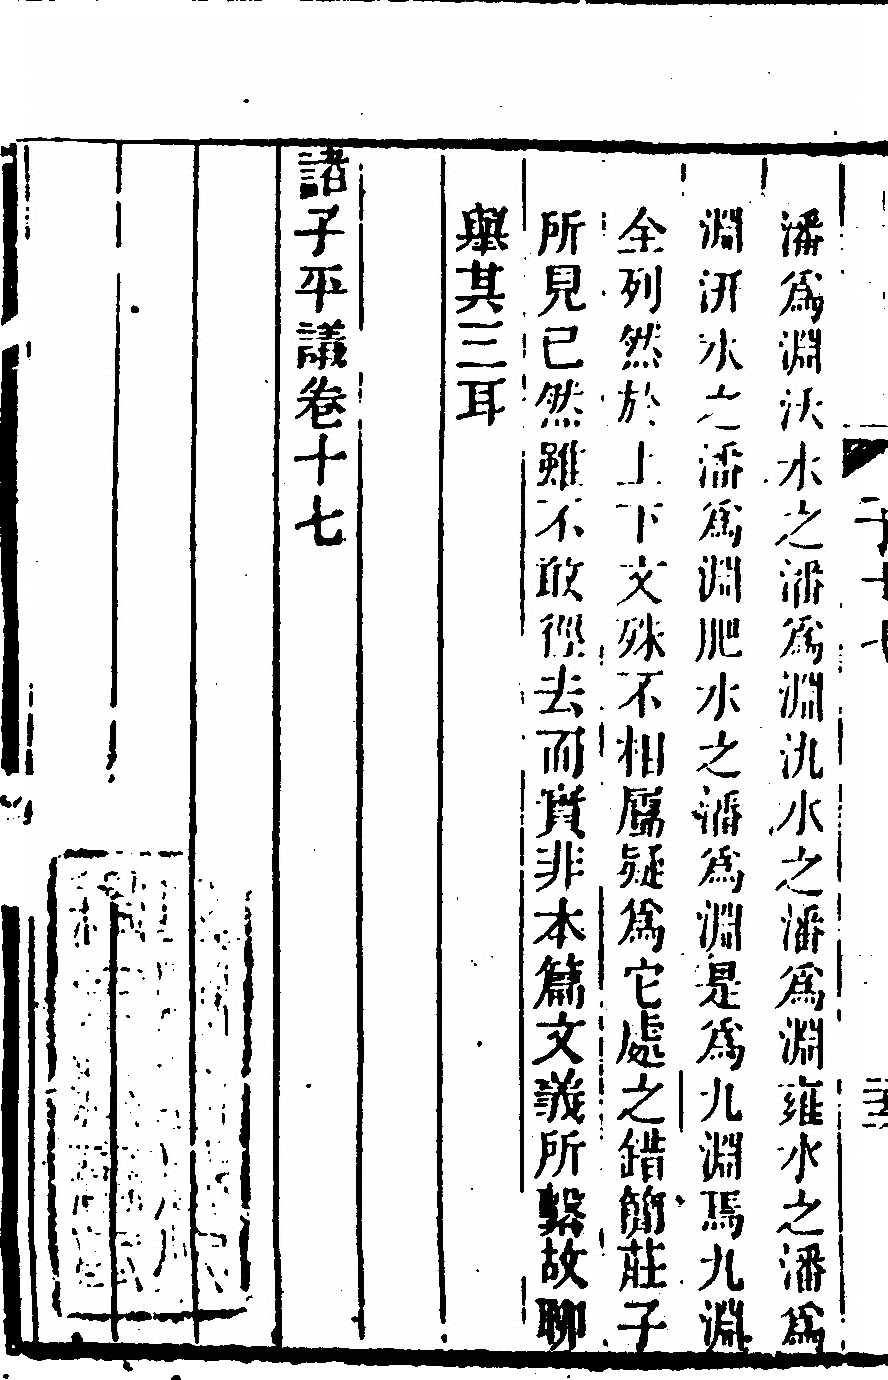 潘爲淵沃水之潘爲淵氿水之潘爲淵雍水之潘爲
淵汧水之潘爲淵肥水之潘爲淵是爲九淵焉九淵
全列然於上下文殊不相屬疑爲它處之錯簡莊子
所見已然雖不敢徑去而實非本篇文義所繫故聊
舉其三耳
諸子平議卷十七